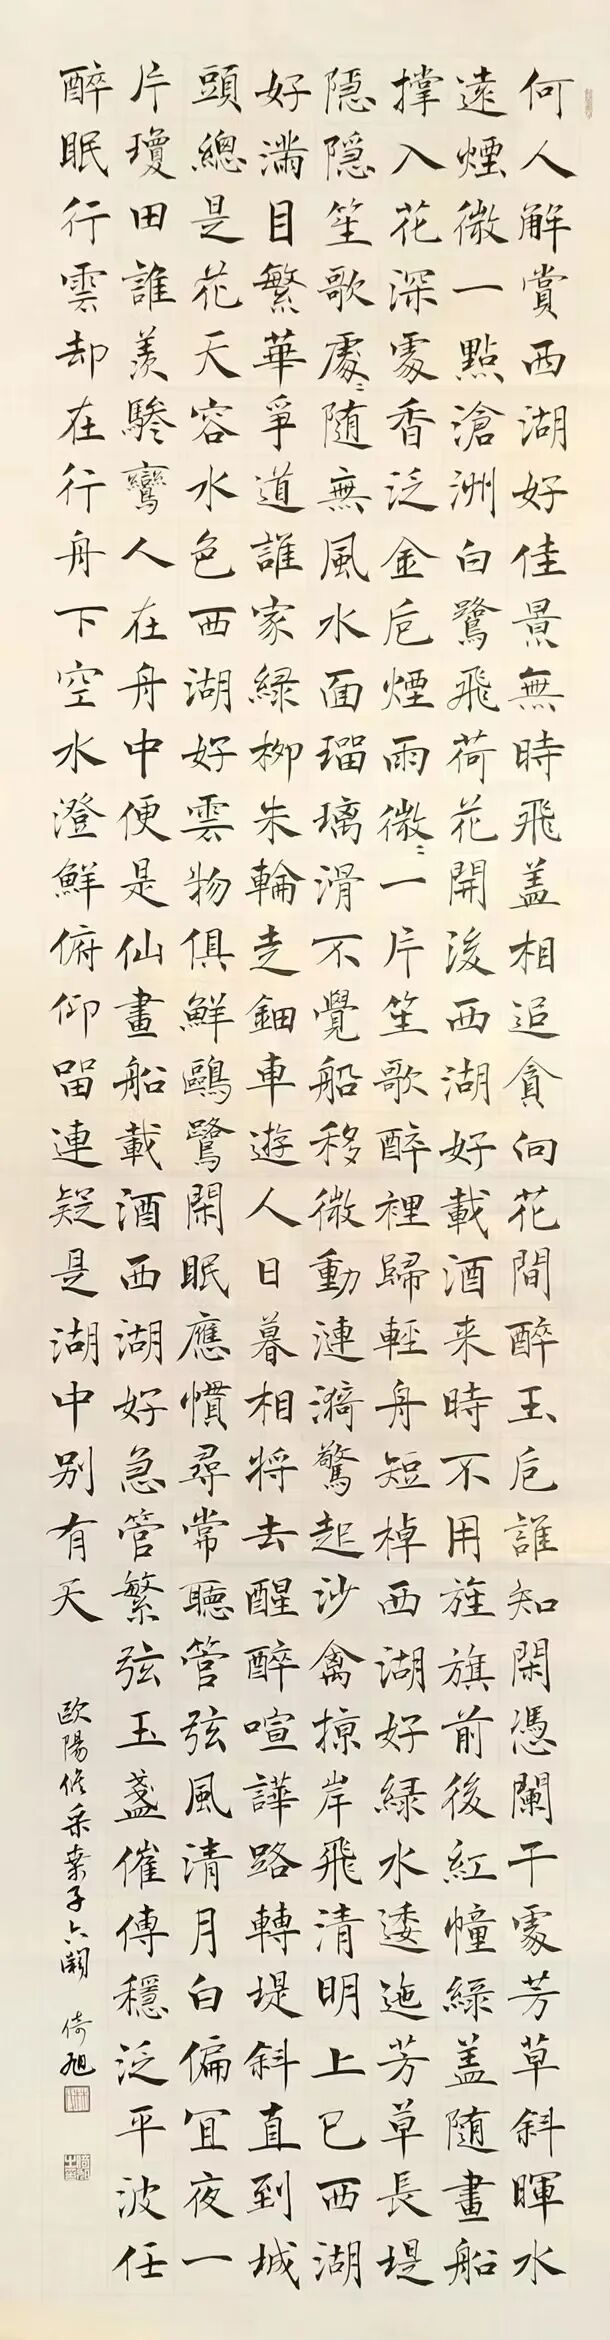 何人解賞西湖好佳景無時飛盖相追貪向花間醉玉卮誰知閑憑闌干處芳草斜暉水
遠煙微一點滄洲白鷺飛荷花開後西湖好載酒来時不用旌旗前後紅幢緑盖隨畫船
撑入花深處香泛金卮煙雨微〻一片笙歌醉裡歸輕舟短棹西湖好緑水逶迤芳草長堤
隱隱笙歌處〻隨無風水面瑠璃滑不覺船移微動漣漪驚起沙禽掠岸飛清明上巳西湖
好滿目繁華爭道誰家緑柳朱輪走鈿車遊人日暮相將去醒醉喧譁路轉堤斜直到城
頭總是花天容水色西湖好雲物俱鮮鷗鷺閑眠應慣尋常聽管弦風清月白偏宜夜一
片瓊田誰羨驂鸞人在舟中便是仙畫船載酒西湖好急管繁弦玉盞催傳穩泛平波任
醉眠行雲却在行舟下空水澄鮮俯仰留連疑是湖中別有天
歐陽修采桑子六闋 倚旭